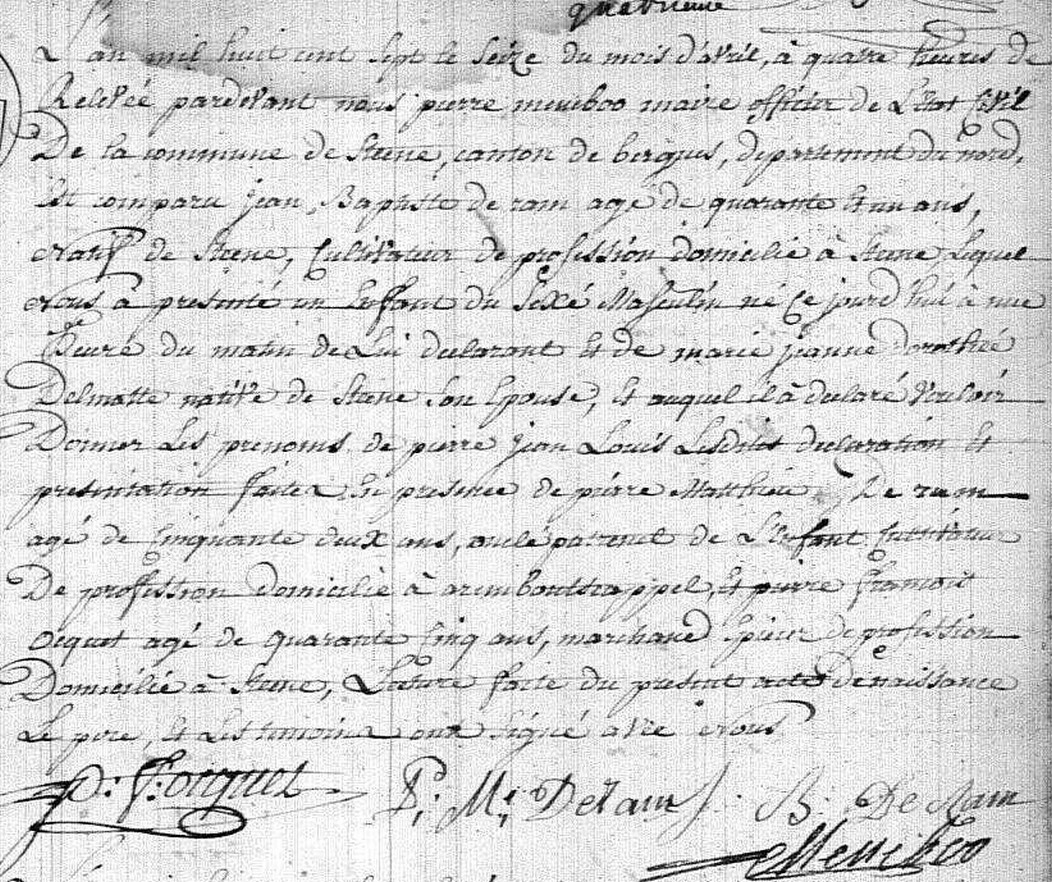 L'an mil huit cent sept le seize du mois d'avril, à quatre heures de
Relevée pardevant nous pierre meniboo maire officier de L'état Civil
De la commune de Steene, canton de bergues, departement du nord,
Est comparu jean Baptiste de ram agé de quarante et un ans,
natif de Steene, Cultivateur de profession domicilié à Steene Lequel
nous à presenté un Enfant du Sexe Masculin né Ce jourd'hui à une
heure du matin de Lui declarant Et de marie jeanne dorothée
Delmatte native de Steene Son Epouse, Et auquel il à declaré Vouloir
Donner Les prenoms de pierre jean Louis Lesdites declaration Et
presentation faites En presence de pierre Matthieu De ram
agé de Cinquante deux ans, oncle paternel de L'Enfant Cultivateur
De profession domicilié à arembouttscappel, Et pierre francois
ocquet agé de quarante Cinq ans, marchand Epicier de profession
Domicilié à Steene, Lecture faite du present acte de naissance
Le pere, Et Les temoins ont Signé avec nous
p: f: ocquet P: M: De Ram J: B: De Ram
Meniboo